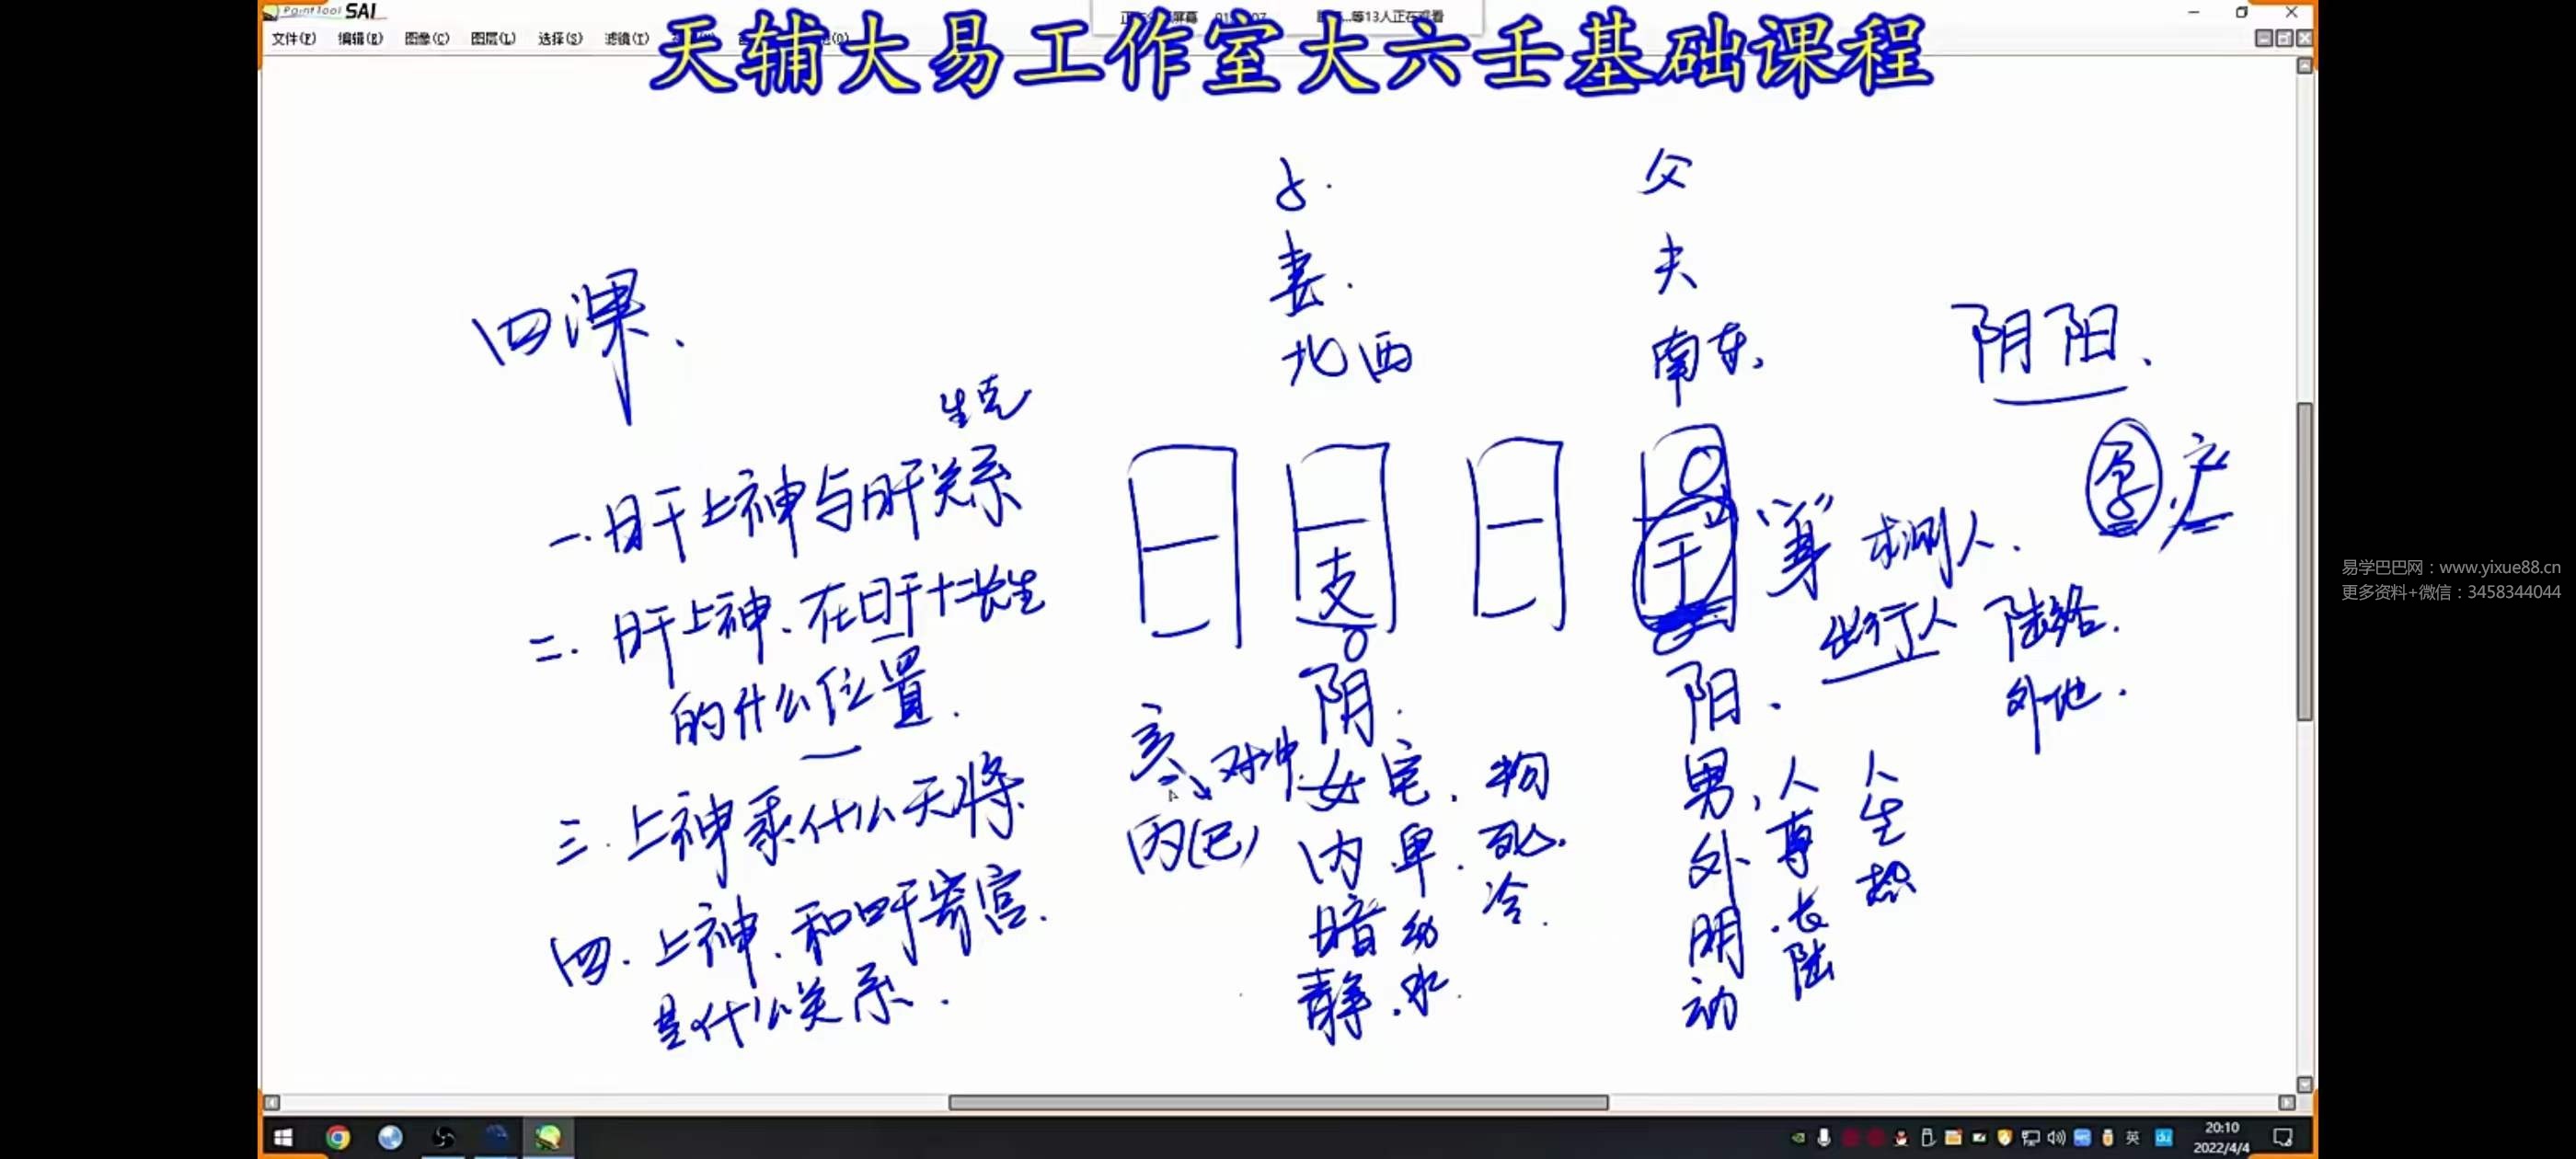 PaintTool SAI
文件(F) 编辑(E) 图像(C) 图层(L) 选择(S) 滤镜(T)
等13人正在观看
天辅大易工作室大六壬基础课程
四课.
一.日干上神与日干关系
生克
二.日干上神、在日干十二长生
的什么位置.
三.上神乘什么天将
四.上神、和日干寄宫
是什么关系.
妻.
北西
父
夫
南东、
支
干
阴.
阳.
亥
对冲
丙(巳)
女宅.物
内卑.死.
冷.
暗幼
静.水.
男,人
外尊
明.长
动
陆
人
生
热
"身"
求测人.
出行人
陆路.
外地.
阴阳、
孕.产
易学巴巴网：www.yixue88.cn
更多资料+微信：3458344044
英
20:10
2022/4/4